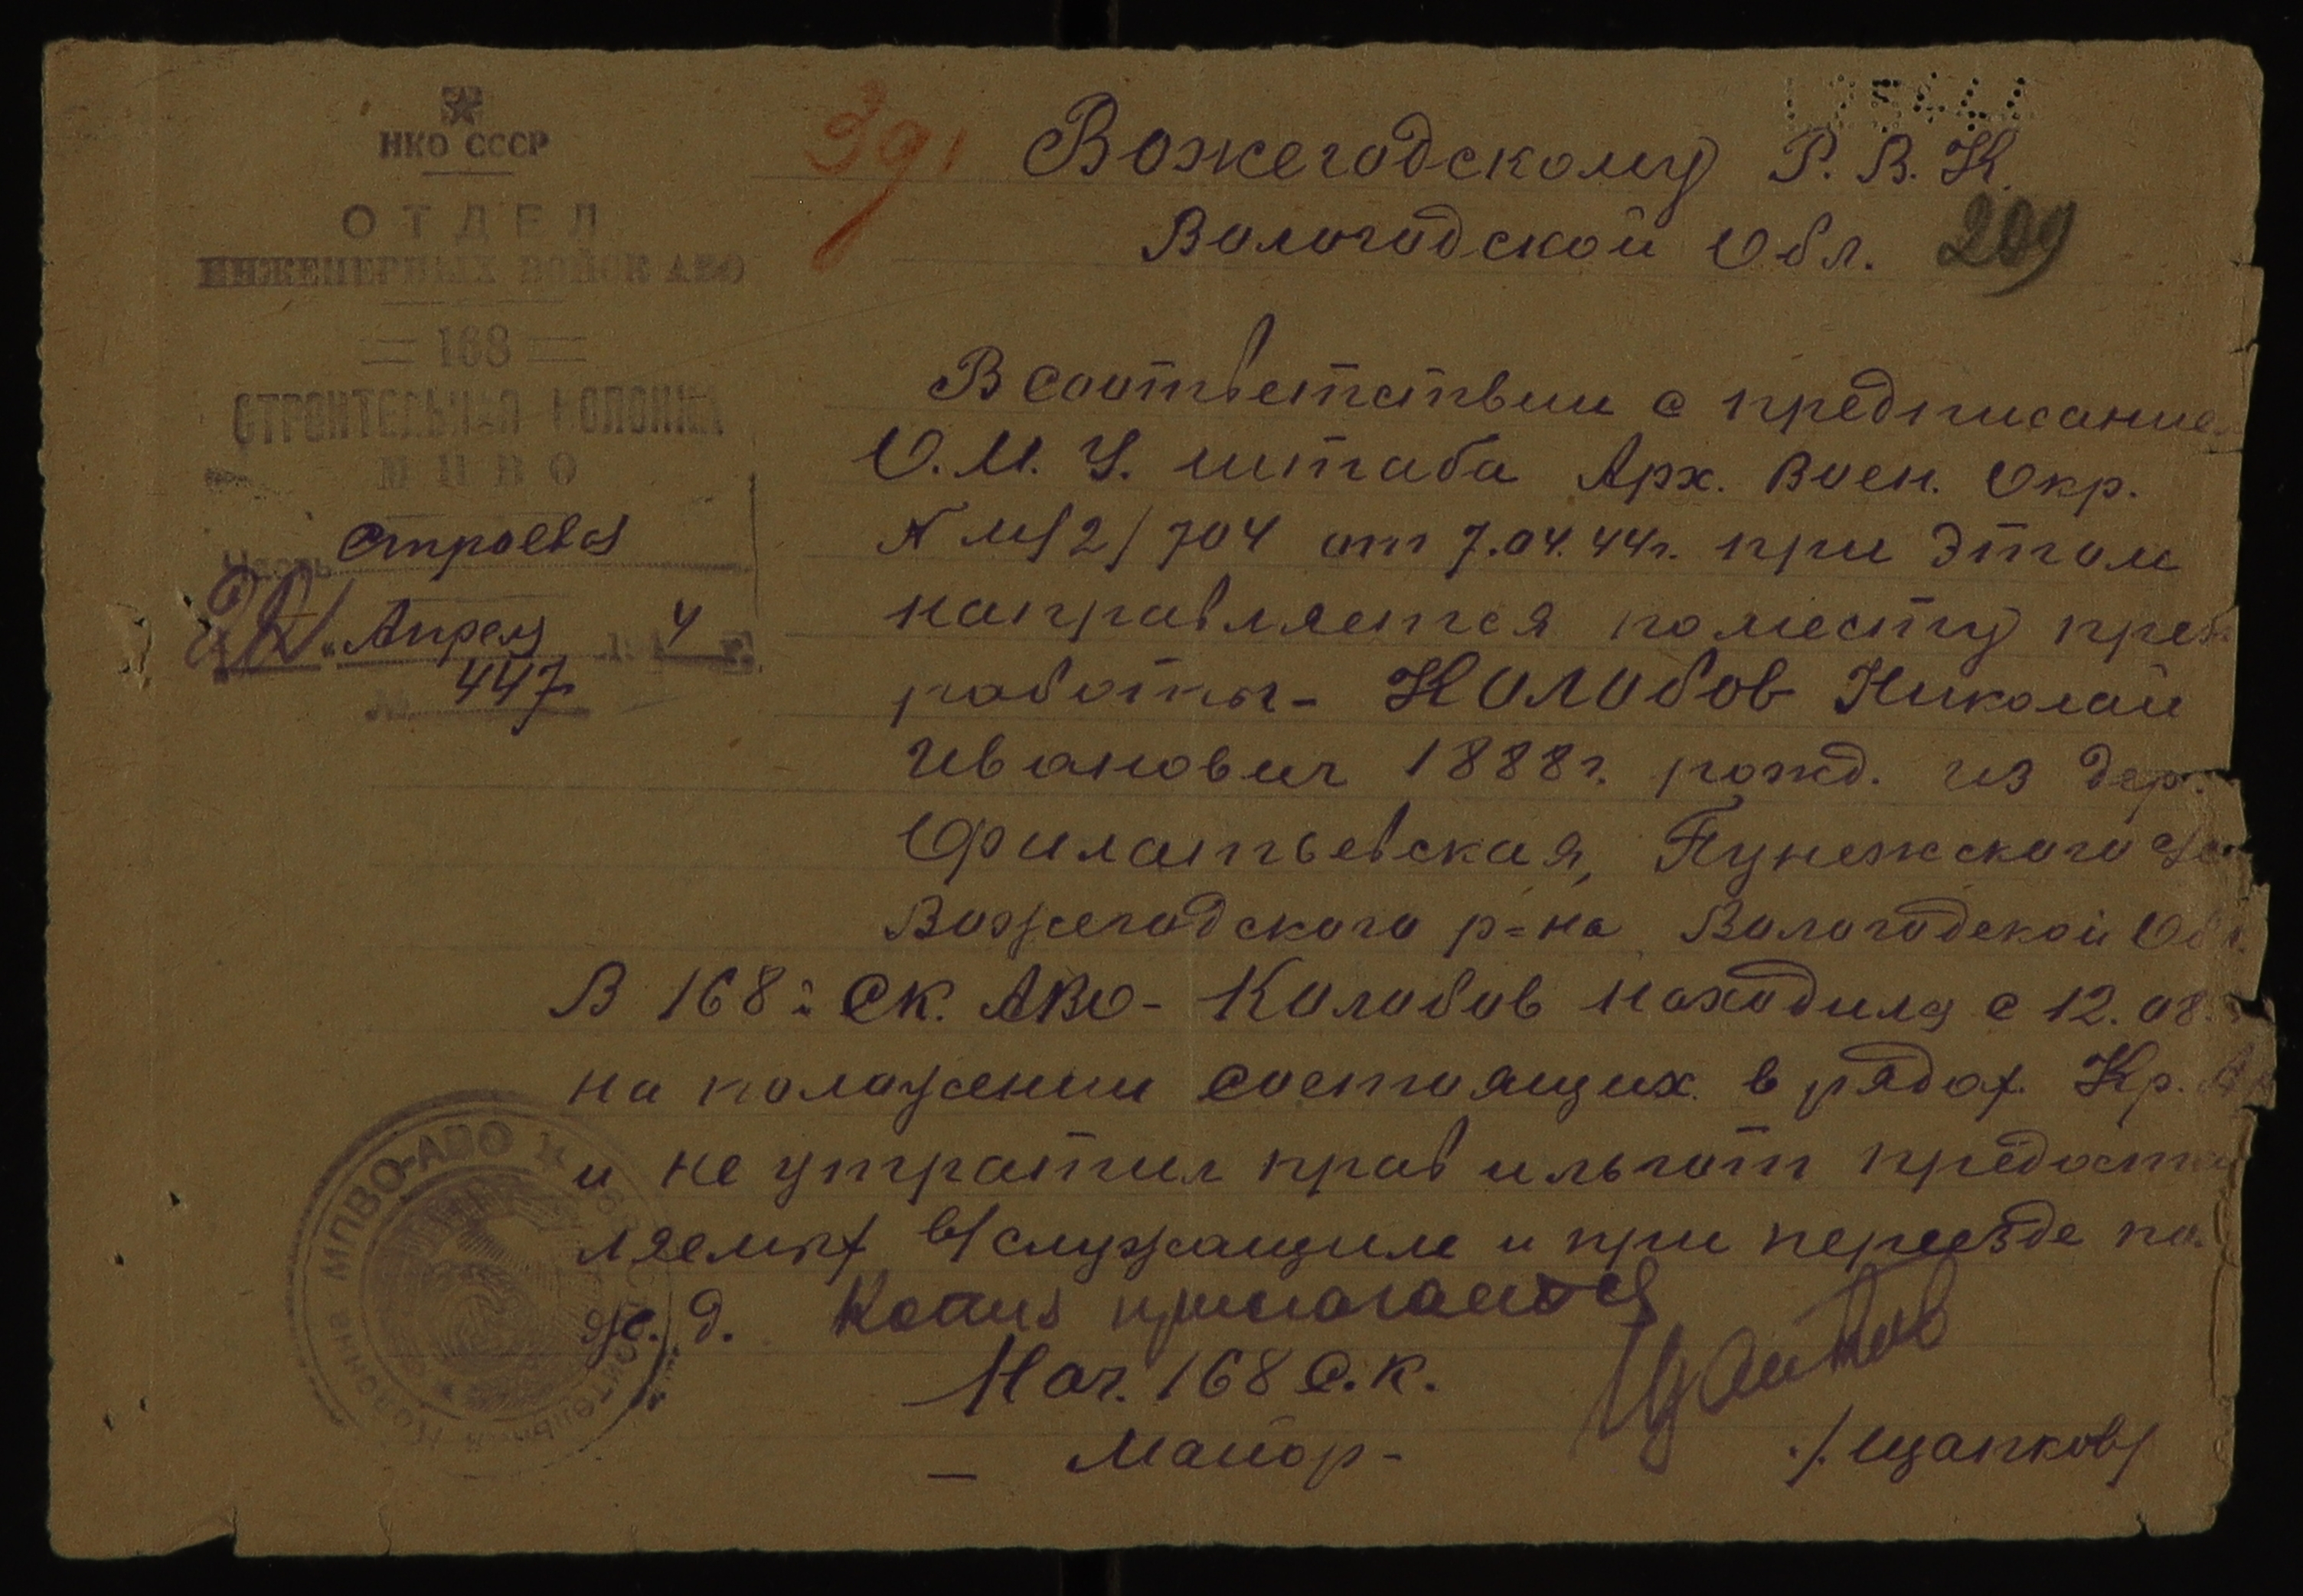 НКО СССР
ОТДЕЛ
ИНЖЕНЕРНЫХ ВОЙСК АВО
168
СТРОИТЕЛЬНАЯ КОЛОННА
МПВО
Часть Строевая
Апреля 194 4 г.
№ 447
391
Вожегодскому Р. В. К.
Вологодской Обл. 209
В соответствии с предписание
О.М.У. штаба Арх. Воен. Окр.
от 7.04.44г. при этом
направляется по месту преж.
работы - Колобов Николай
Иванович 1888г. рожд. из дер.
Филатьевская, Пунемского
Вожегодского р=на Вологодской Обл.
В 168 й СК. АВО - Колобов находился с 12.08.
на положении состоящих в рядах Кр.
и не утратил прав и льгот предостав
ляемых в/служащим и при переезде по
ж. д. Копия прилагается
Нач. 168 С.К.
Майор -
/Щапков/
КОЛОННА МПВО-АВО 168 СТРОИТЕЛЬНАЯ